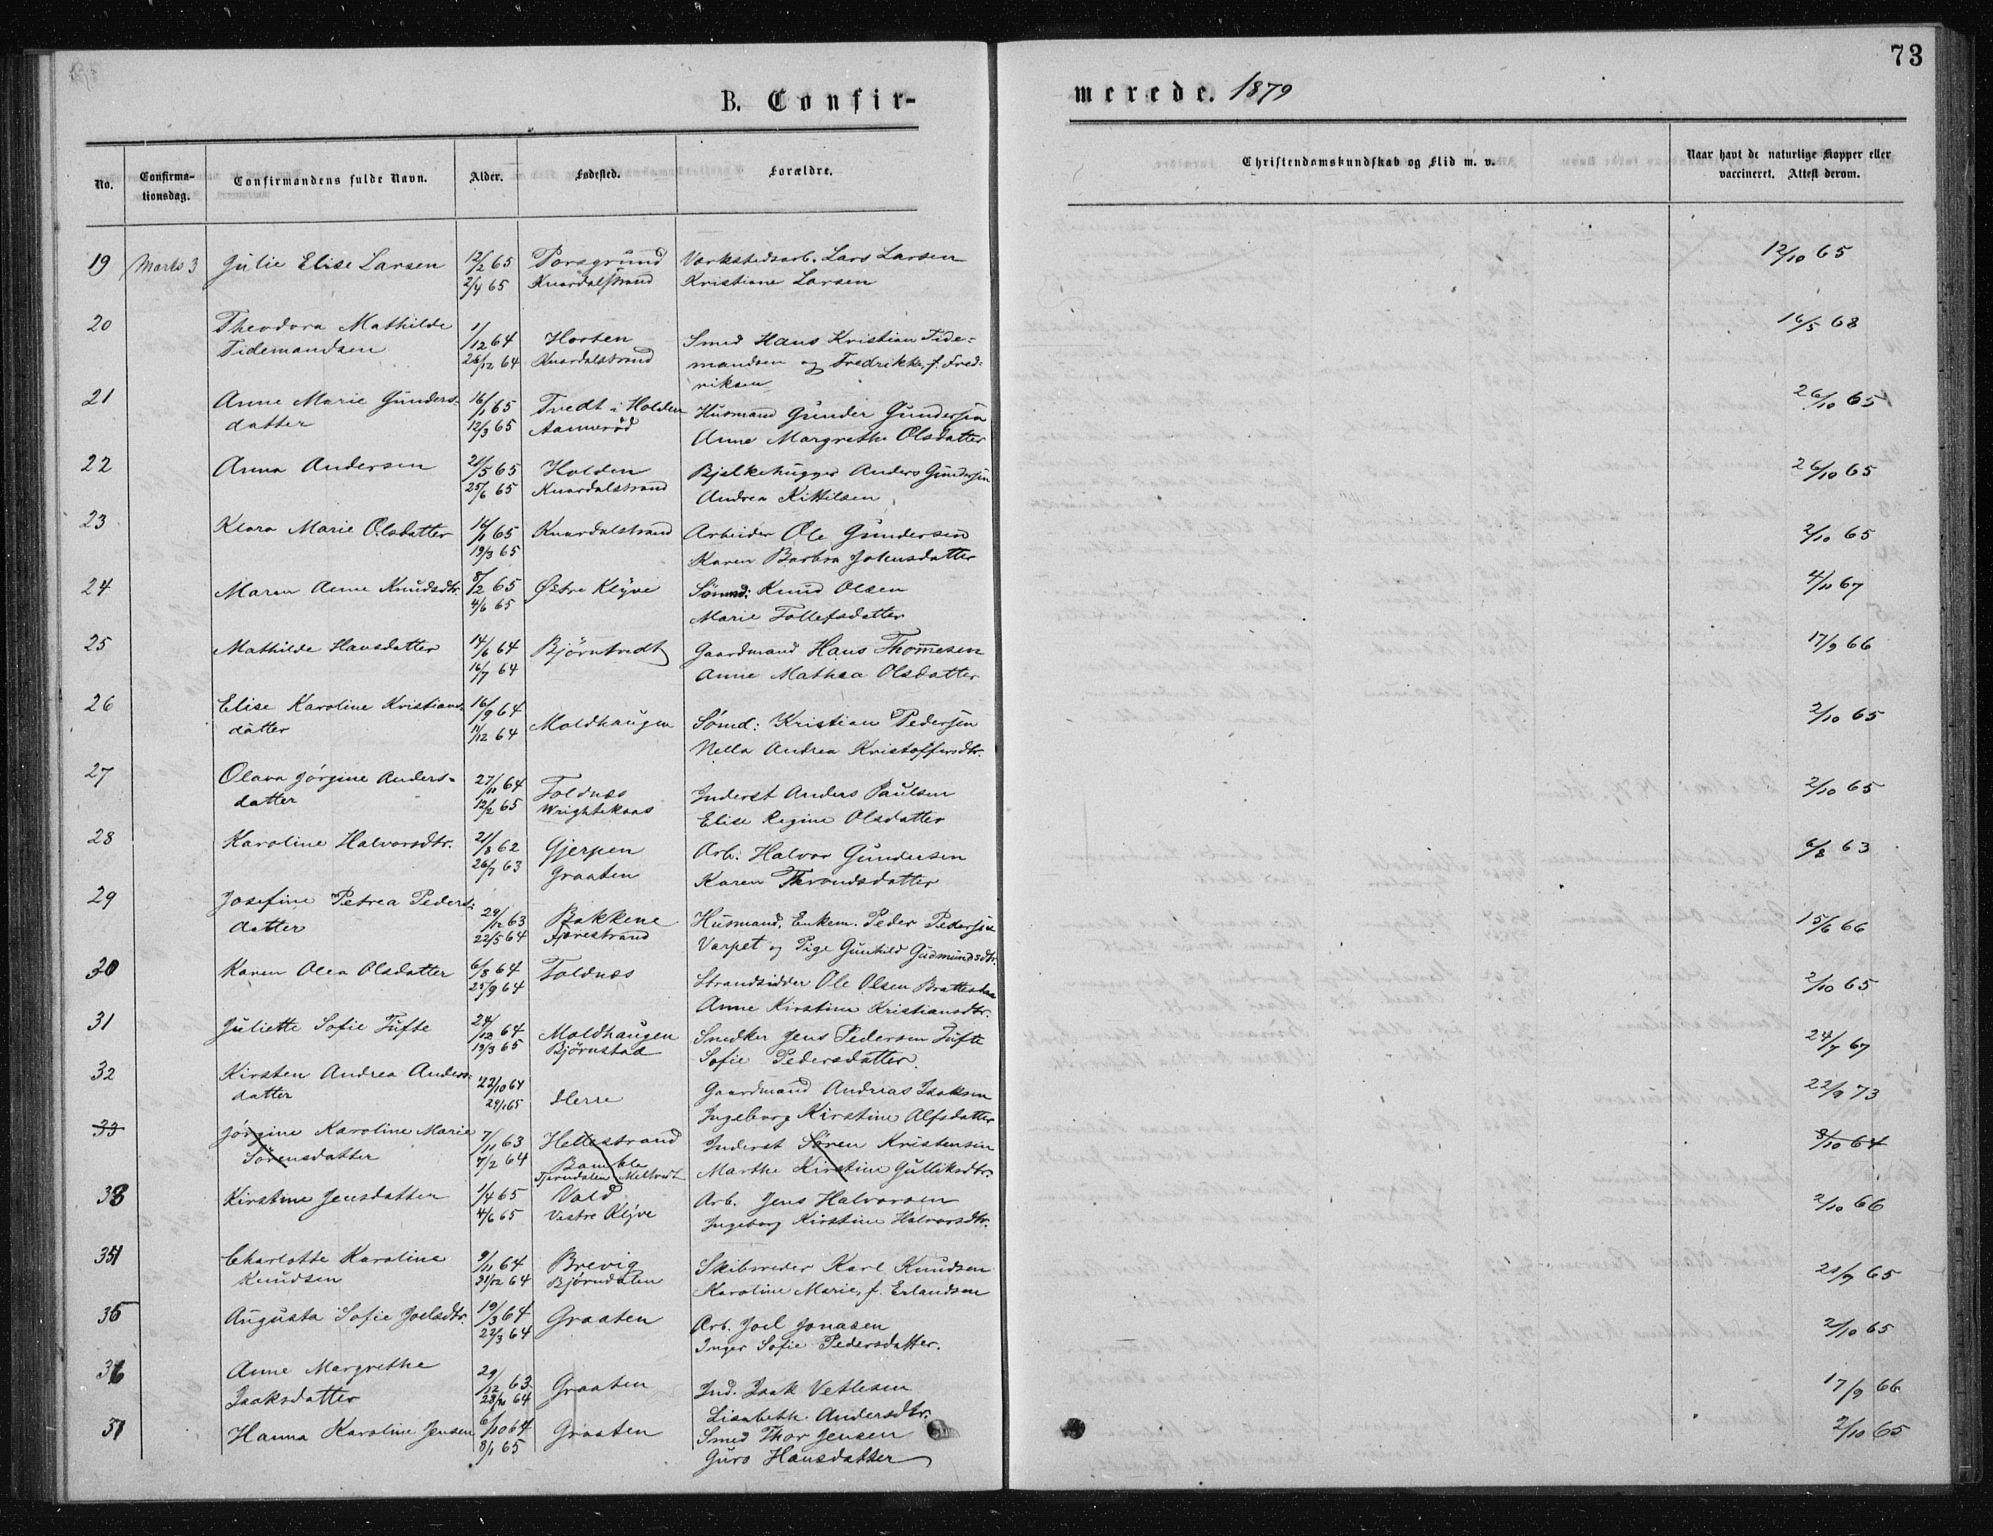 73
B. Confir-
merede. 1879
No.
Confirma-
tionsdag.
Confirmandens fulde Navn.
Alder.
Fødested.
Forældre.
Christendomskundskab og Flid m. v.
Naar havt de naturlige Kopper eller
vaccineret. Attest derom.
19 Marts 3 Julie Elise Larsen 12/2 65 Porsgrund Værkstedsarb. Lars Larsen 12/10 65
2/4 65 Knardalstrand Kristiane Larsen
20 Theodora Mathilde 1/12 64 Horten Smed Hans Kristian Tide- 16/5 68
Tidemandsen 26/12 64 Knardalstrand mandsen og Fredrikke, f. Fred-
riksen
21 Anne Marie Gunders- 16/1 65 Tvedt i Holden Husmand Gunder Gundersen 26/10 65
datter 12/3 65 Aamerød Anne Margrethe Olsdatter
22 Anna Andersen 21/5 65 Holden Bjelkehugger Anders Gundersen 26/10 65
25/6 65 Knardalstrand Andrea Kittilsen
23 Klara Marie Olsdatter 16/1 65 Knardalstrand Arbeider Ole Gundersen 2/10 65
19/3 65 Karen Barbra Johnsdatter
24 Maren Anne Knudsdtr. 8/2 65 Østre Klyve Sømd: Knud Olsen 4/11 67
4/6 65 Marie Tollefsdatter
25 Mathilde Hansdatter 14/6 64 Bjørntvedt Gaardmand Hans Thomesen 17/9 66
16/7 64 Anne Mathea Olsdatter
26 Elise Karoline Kristians- 16/9 64 Moldhaugen Sømd: Kristian Pedersen 2/10 65
datter 11/12 64 Nella Andrea Kristoffersdtr.
27 Olava Jørgine Anders- 27/11 64 Toldnæs Inderst Anders Paulsen 2/10 65
datter 12/2 65 Wrightekaas Elise Regine Olsdatter
28 Karoline Halvorsdtr. 21/8 62 Gjerpen Arb. Halvor Gundersen 6/8 63
26/7 63 Graaten Karen Throndsdatter
29 Josefine Petrea Peders- 29/12 63 Bakkene Husmand, Enkem. Peder Pedersen 15/6 66
datter 22/5 64 Fjærestrand Varpet og Pige Gunhild Gudmundsdtr.
30 Karen Olea Olsdatter 6/8 64 Toldnæs Strandsidder Ole Olsen 2/10 65
25/9 64 Anne Kirstine Kristiansdtr.
31 Juliette Sofie Tufte 24/12 64 Moldhaugen Snedker Jens Pedersen Tufte 24/7 67
19/3 65 Bjørnstad Sofie Pedersdatter.
32 Kirsten Andrea Anders- 22/10 64 Herre Gaardmand Andreas Isaksen 22/9 73
datter 29/1 65 Ingeborg Kirstine Alfsdatter
33 Jørgine Karoline Marie 7/11 63 Hellestrand Inderst Søren Kristensen 8/10 64
Sørensdatter 7/2 64 Bamble Marthe Kirstine Gulliksdtr.
33 Kirstine Jensdatter 1/4 65 Vold Arb. Jens Halvorsen 2/10 66
4/6 65 Vestre Klyve Ingeborg Kirstine Halvorsdtr.
34 Charlotte Karoline 9/11 64 Brevig Skibsreder Karl Knudsen 21/9 65
Knudsen 31/12 64 Bjørndalen Karoline Marie, f. Erlandsen
35 Augusta Sofie Joelsdtr. 19/3 64 Graaten Arb. Joel Jonasen 2/10 65
22/3 64 Inger Sofie Pedersdatter.
36 Anne Margrethe 29/12 63 Graaten Ind. Isak Vetlesen 17/9 66
Isaksdatter 64 Lisabeth Andersdtr.
37 Hanna Karoline Jensen 6/10 64 Graaten Smed Thor Jensen 2/10 65
8/1 65 Guro Hansdatter